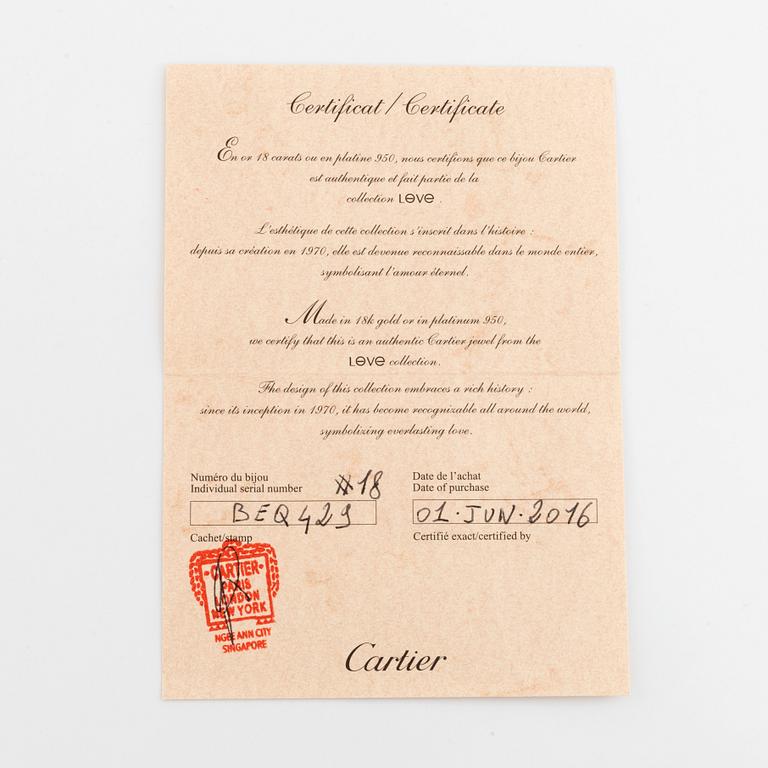 Certificat / Certificate
En or 18 carats ou en platine 950, nous certifions que ce bijou Cartier
est authentique et fait partie de la
collection LOVE .
L'esthétique de cette collection s'inscrit dans l'histoire :
depuis sa création en 1970, elle est devenue reconnaissable dans le monde entier,
symbolisant l'amour éternel.
Made in 18k gold or in platinum 950,
we certify that this is an authentic Cartier jewel from the
LOVE collection.
The design of this collection embraces a rich history :
since its inception in 1970, it has become recognizable all around the world,
symbolizing everlasting love.
Numéro du bijou
Individual serial number
#18
BEQ429
Date de l'achat
Date of purchase
01·JUN·2016
Cachet/stamp
Certifié exact/certified by
·CARTIER·
PARIS
LONDON
NEW YORK
NGEE ANN CITY
SINGAPORE
Cartier